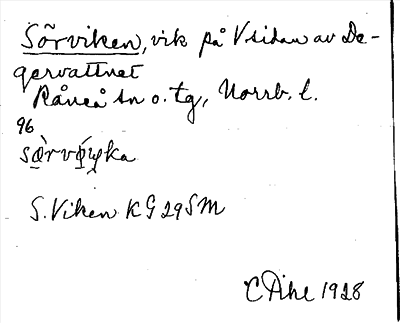 Sörviken, vik på V sidan av De-
gervattnet
Råneå sn o. tg, Norrb. l.
96
S. Viken KG 29 SM
1928